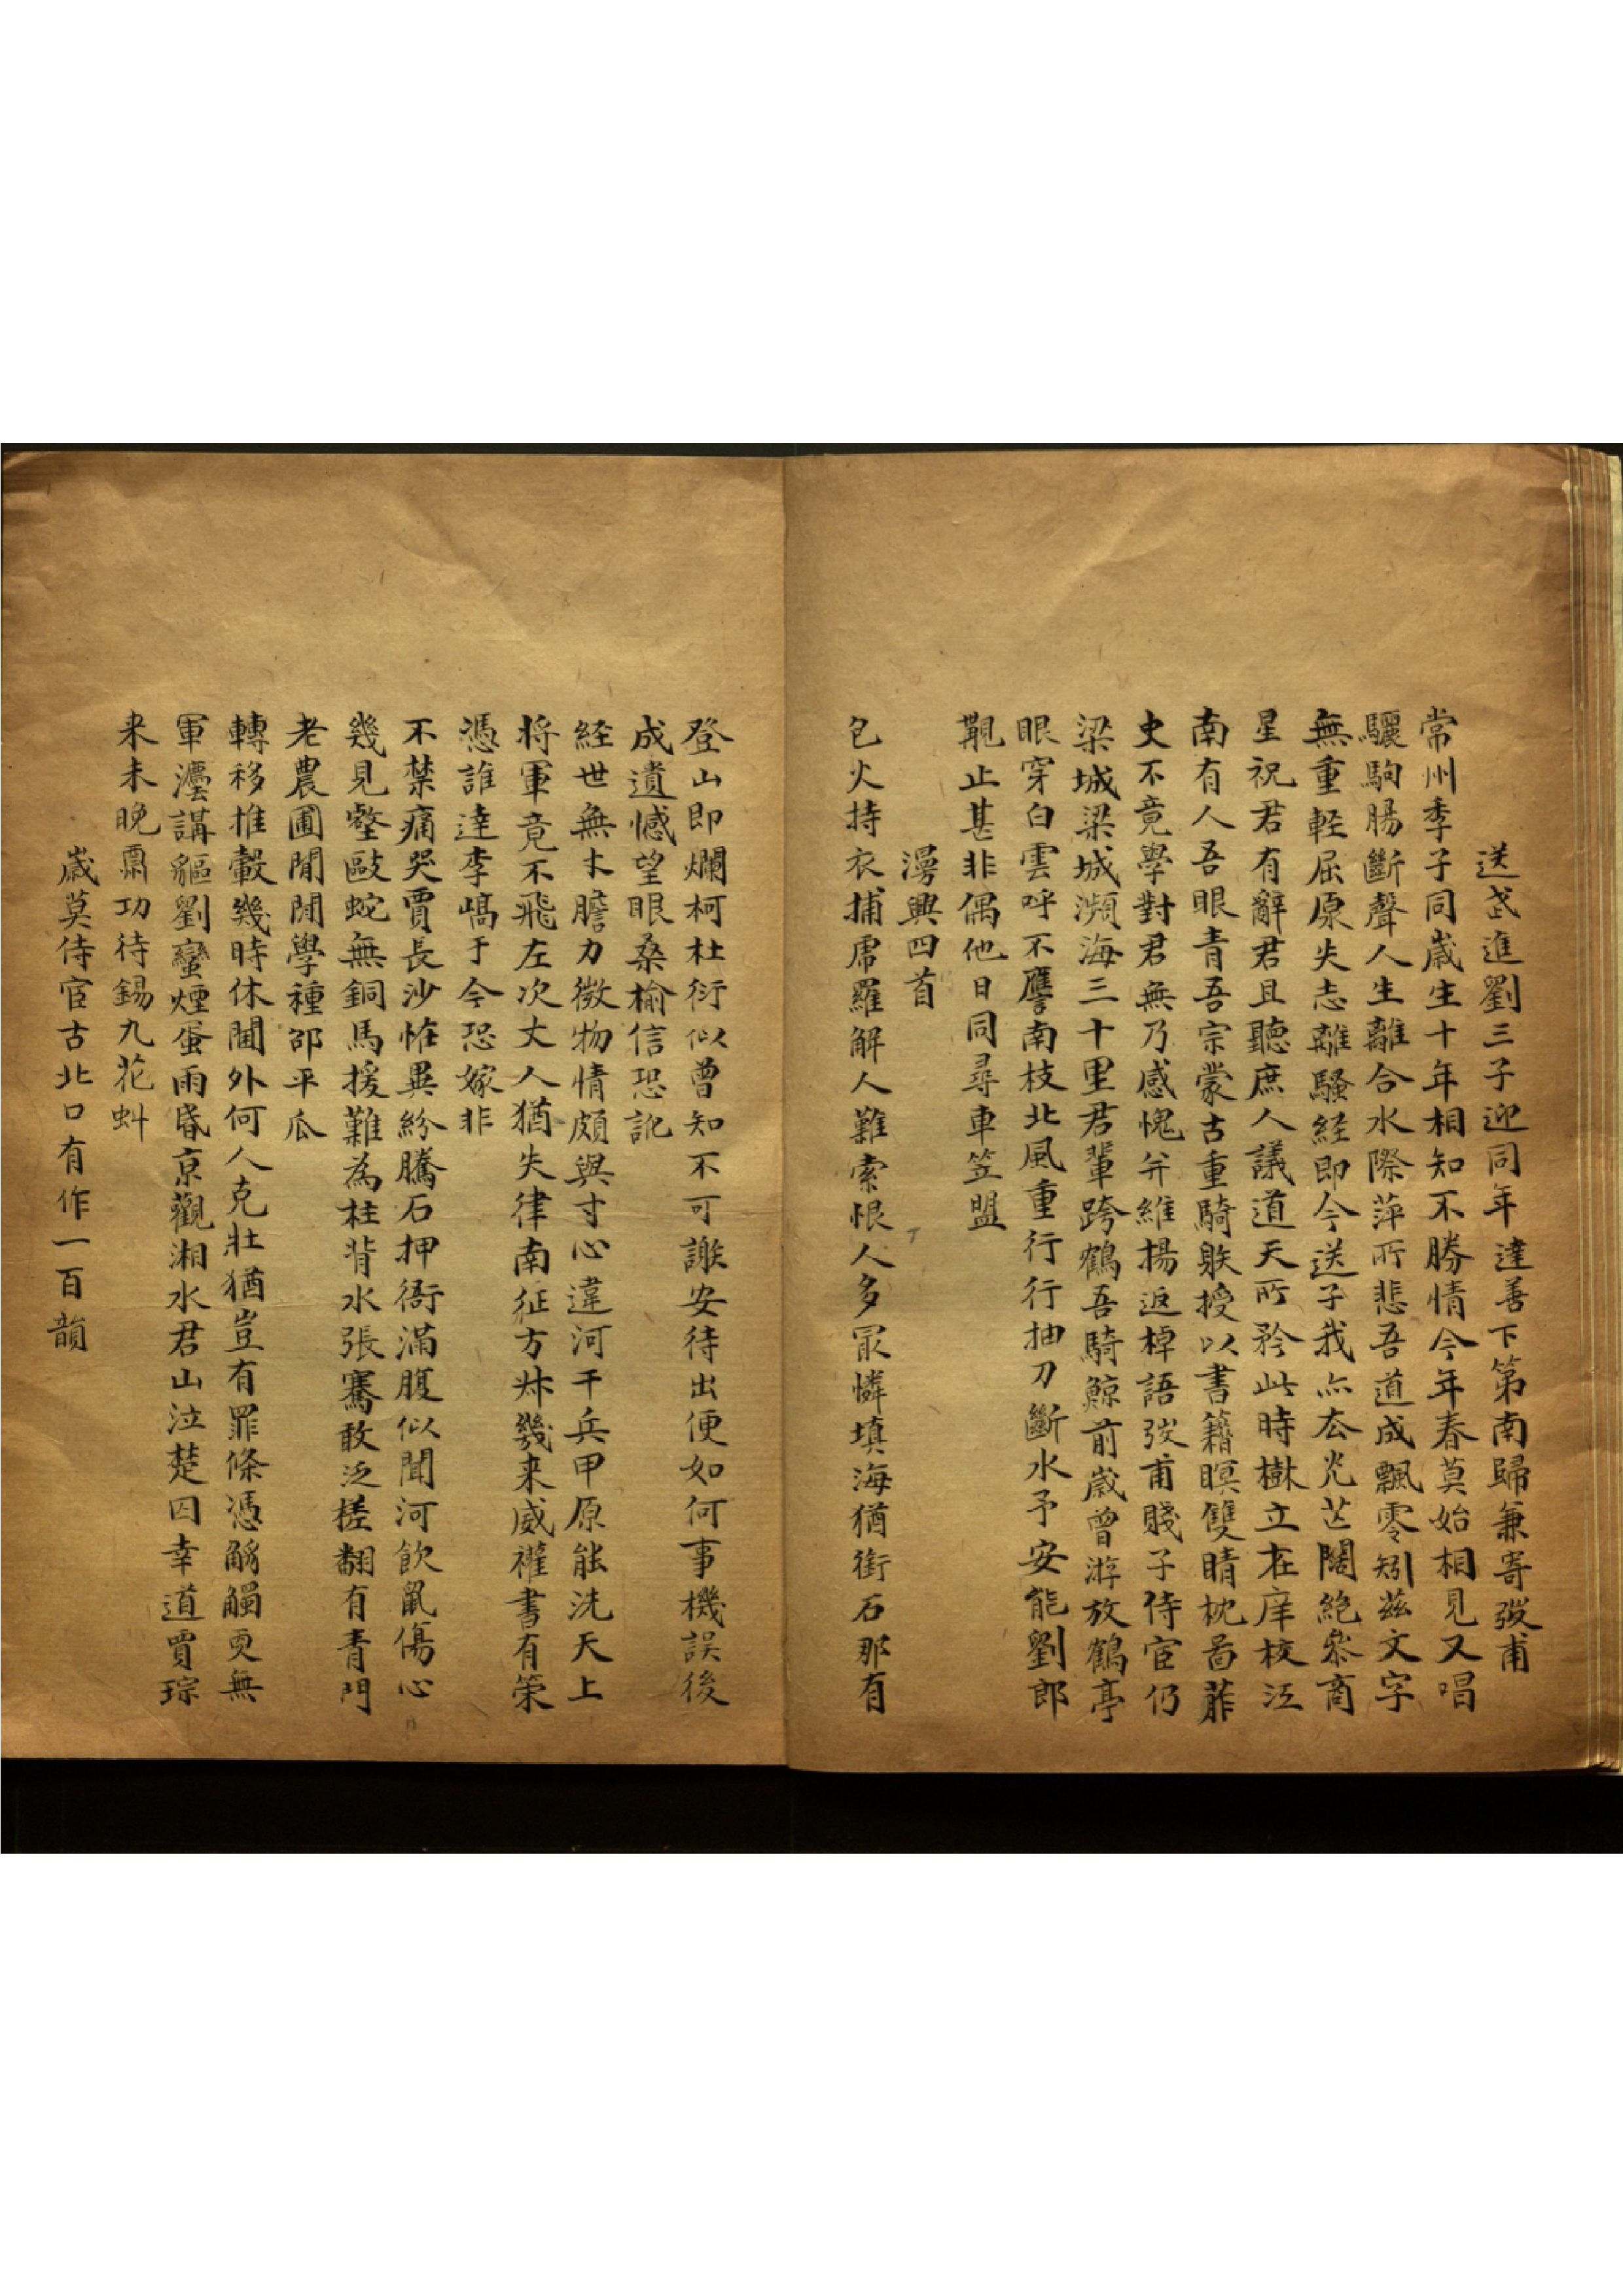 送武進劉三子迎同年達善下第南歸兼寄弢甫
常州季子同歲生十年相知不勝情今年春莫始相見又唱
驪駒腸斷聲人生離合水際萍所悲吾道成飄零矧茲文字
無重輕屈原失志離騷経即今送子我亦厺光芒闊絶叅商
星祝君有辭君且聽庶人議道天所矜此時樹立在庠校江
南有人吾眼青吾宗蒙古重騎躲授以書籍瞑雙睛枕葄
史不竟學對君無乃感愧并維揚返棹語弢甫賤子侍宦仍
梁城梁城瀕海三十里君輩跨鶴吾騎鯨前歲曾游放鶴亭
眼穿白雲呼不譍南枝北風重行行抽刀斷水予安能劉郎
覯止甚非偶他日同尋車笠盟
漫興四首
包火持衣捕虎羅解人難索恨人多冣憐填海猶銜石那有
登山即爛柯杜衍似曾知不可謝安待出便如何事機誤後
成遺憾望眼桑榆信恐訛
経世無才膽力微物情頗與寸心違河干兵甲原能洗天上
將軍竟不飛左次丈人猶失律南征方叔幾来威權書有策
憑誰達李嶠于今恐嫁非
不禁痛哭賈長沙怪異紛騰石押衙滿腹似聞河飲鼠傷心
幾見壑敺蛇無銅馬援難為柱背水張騫敢泛槎翻有青門
老農圃閒閒學種邵平瓜
轉移推轂幾時休閫外何人克壯猶豈有罪條憑觹觸更無
軍灋講貙劉蠻煙蛋雨昏京觀湘水君山泣楚囚幸道賈琮
来未晚鼐功待錫九花虯
歲莫侍宦古北口有作一百韻